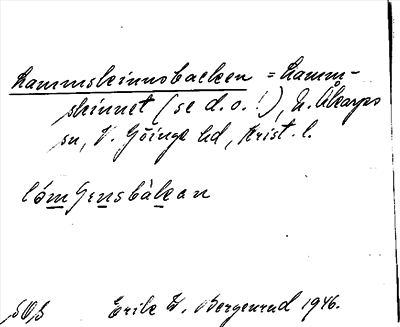 Lammskinnsbacken = Lamm-
skinnet (se d.o.!), N. Åkarps
sn, V. Göinge hd, Krist. l.
lómʃensbàkan
Erik W. Bergenrud 1946.